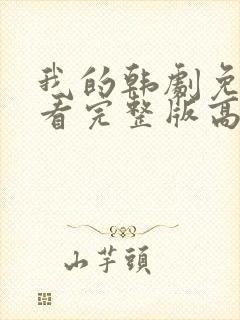 我的韩剧免
看完整版高
山芋頭